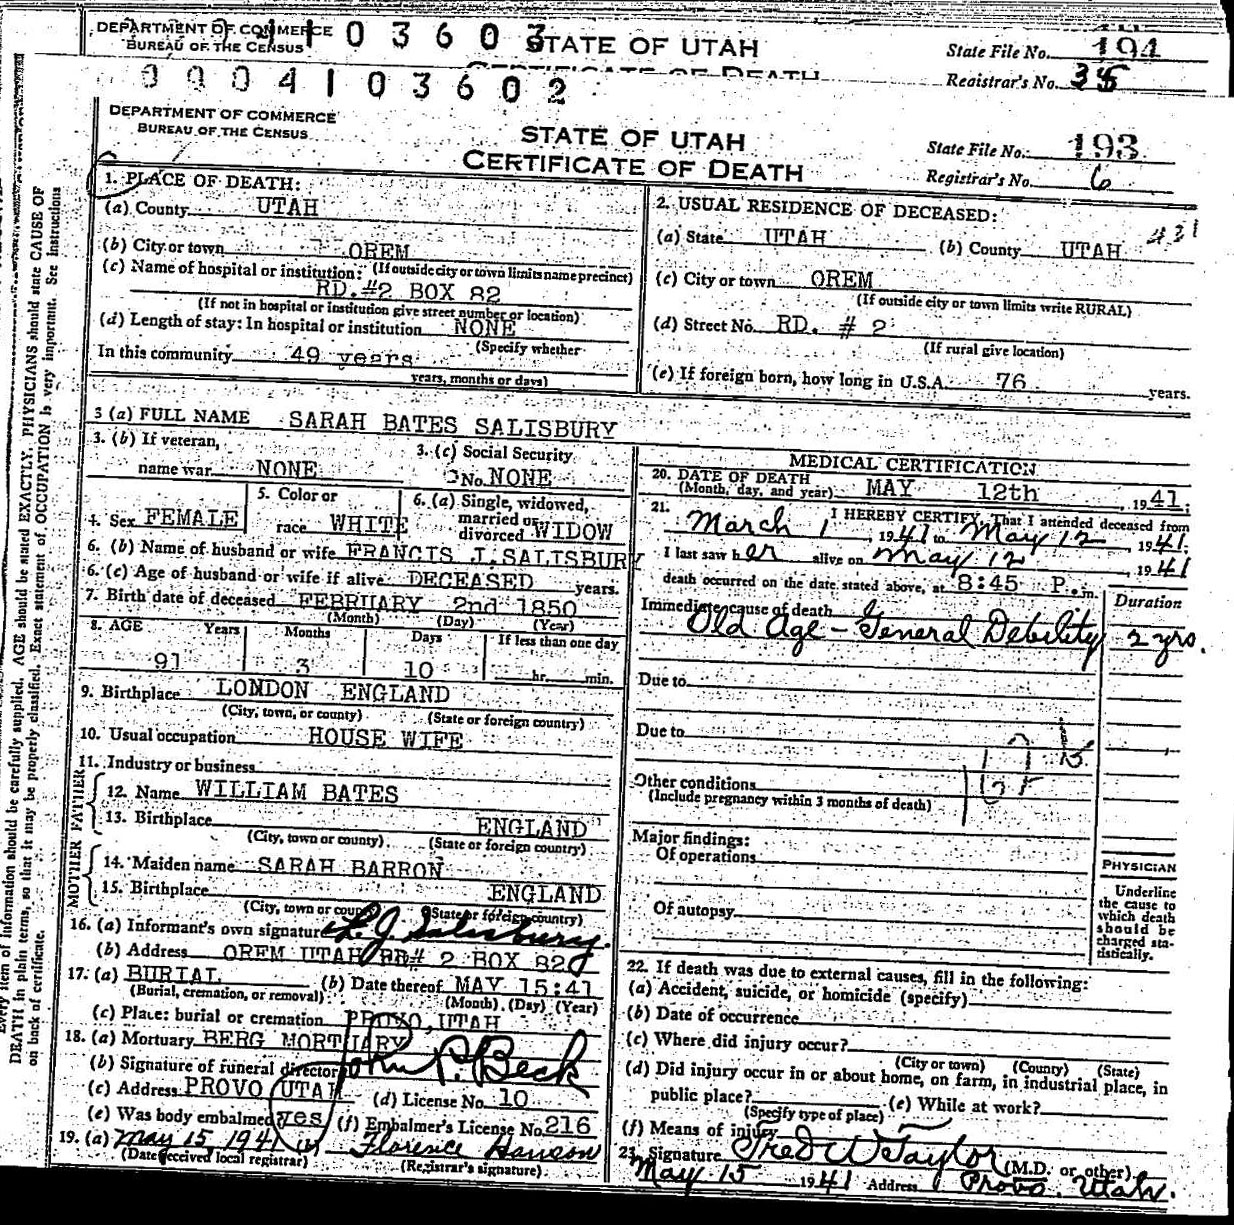 DEPARTMENT OF COMMERCE
BUREAU OF THE CENSUS
1 0 3 6 0 3
STATE OF UTAH
CERTIFICATE OF DEATH
State File No. 194
Registrar's No. 35
0 0 0 4 1 0 3 6 0 2
DEPARTMENT OF COMMERCE
BUREAU OF THE CENSUS
STATE OF UTAH
CERTIFICATE OF DEATH
State File No. 193
Registrar's No. 6
Every item of information should be carefully supplied. AGE should be stated EXACTLY. PHYSICIANS should state CAUSE OF
DEATH in plain terms, so that it may be properly classified. Exact statement of OCCUPATION is very important. See instructions
on back of certificate.
1. PLACE OF DEATH:
(a) County UTAH
(b) City or town OREM
(If outside city or town limits name precinct)
(c) Name of hospital or institution:
RD. #2 BOX 82
(If not in hospital or institution give street number or location)
(d) Length of stay: In hospital or institution NONE
(Specify whether
In this community 49 years
years, months or days)
2. USUAL RESIDENCE OF DECEASED:
431
(a) State UTAH (b) County UTAH
(c) City or town OREM
(If outside city or town limits write RURAL)
(d) Street No. RD. # 2
(If rural give location)
(e) If foreign born, how long in U.S.A. 76 years.
3 (a) FULL NAME SARAH BATES SALISBURY
3. (b) If veteran,
name war NONE
3. (c) Social Security
No. NONE
4. Sex FEMALE
5. Color or
race WHITE
6. (a) Single, widowed,
married or
divorced WIDOW
6. (b) Name of husband or wife FRANCIS J. SALISBURY
6. (c) Age of husband or wife if alive DECEASED years.
7. Birth date of deceased FEBRUARY 2nd 1850
(Month) (Day) (Year)
8. AGE Years Months Days If less than one day
91 3 10 hr. min.
9. Birthplace LONDON ENGLAND
(City, town, or county) (State or foreign country)
10. Usual occupation HOUSE WIFE
11. Industry or business
FATHER
12. Name WILLIAM BATES
13. Birthplace ENGLAND
(City, town or county) (State or foreign country)
MOTHER
14. Maiden name SARAH BARRON
15. Birthplace ENGLAND
(City, town or county) (State or foreign country)
16. (a) Informant's own signature L. J. Salisbury
(b) Address OREM UTAH RD# 2 BOX 82
17. (a) BURIAL (b) Date thereof MAY 15:41
(Burial, cremation, or removal) (Month) (Day) (Year)
(c) Place: burial or cremation PROVO, UTAH
18. (a) Mortuary BERG MORTUARY
(b) Signature of funeral director John P. Beck
(c) Address PROVO UTAH (d) License No. 10
(e) Was body embalmed yes (f) Embalmer's License No. 216
19. (a) May 15 1941 (b) Florence Hanson
(Date received local registrar) (Registrar's signature)
MEDICAL CERTIFICATION
20. DATE OF DEATH
(Month, day, and year) MAY 12th 1941
21. I HEREBY CERTIFY, That I attended deceased from
March 1, 1941 to May 12 1941
I last saw her alive on May 12, 1941
death occurred on the date stated above, at 8:45 P.m.
Immediate cause of death Duration
Old Age - General Debility 2 yrs.
Due to
Due to
Other conditions
(Include pregnancy within 3 months of death)
Major findings:
Of operations
Of autopsy
PHYSICIAN
Underline
the cause to
which death
should be
charged sta-
tistically.
22. If death was due to external causes, fill in the following:
(a) Accident, suicide, or homicide (specify)
(b) Date of occurrence
(c) Where did injury occur?
(City or town) (County) (State)
(d) Did injury occur in or about home, on farm, in industrial place, in
public place? (e) While at work?
(Specify type of place)
(f) Means of injury
23. Signature Fred W Taylor (M.D. or other)
May 15 1941 Address Provo. Utah.